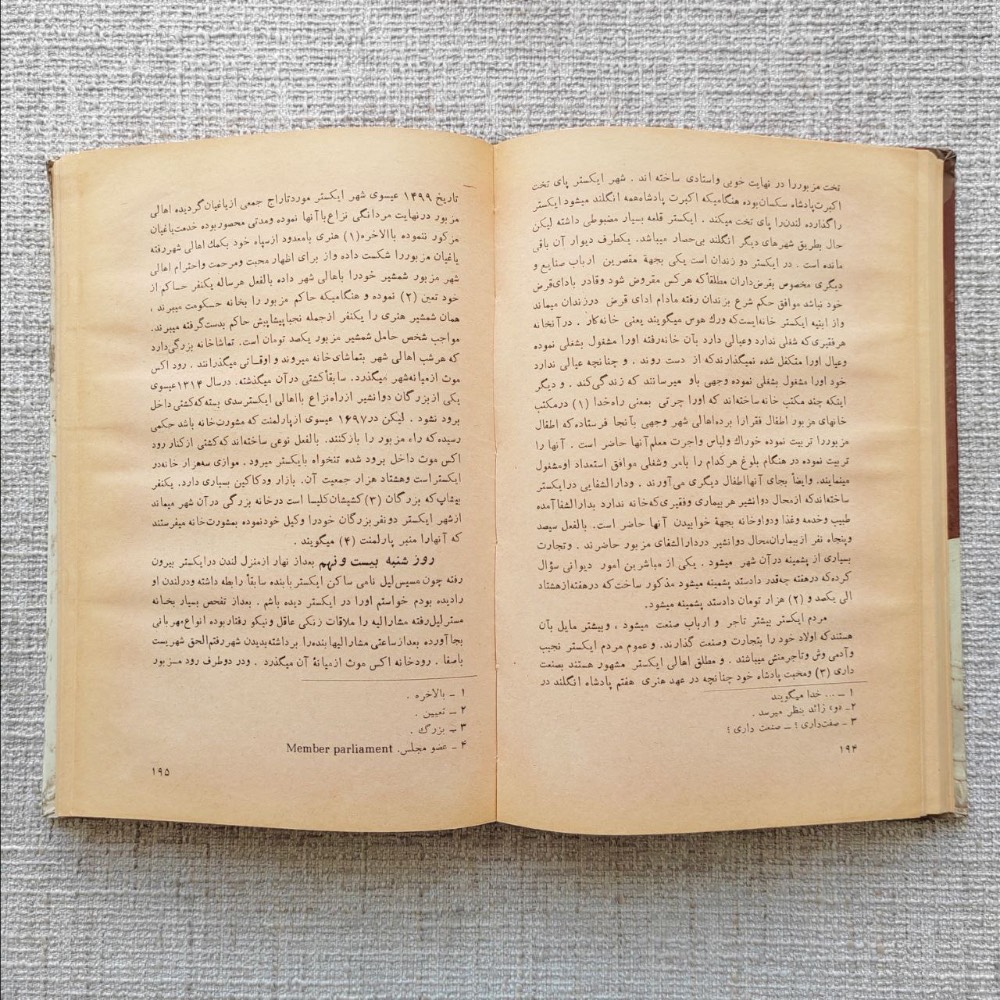 تخت مزبوررا در نهایت خوبی واستادی ساخته اند . شهر ایکستر پای تخت
اکبرت پادشاه سکسان بوده هنگامیکه اکبرت پادشاه همه انگلند میشود ایکستر
را گذارده لندن را پای تخت میکند . ایکستر قلعه بسیار مضبوطی داشته لیکن
حال بطریق شهرهای دیگر انگلند بی حصار میباشد. یکطرف دیوار آن باقی
مانده است . در ایکستر دو زندان است یکی بجههٔ مقصرین ارباب صنایع و
دیگری مخصوص بقرض داران مطلقاً که هر کس مقروض شود وقادر بادای قرض
خود نباشد موافق حکم شرع بزندان رفته مادام ادای قرض درزندان میماند
و از ابنیه ایکستر خانه ایست که ورك هوس میگویند یعنی خانه کار . در آنخانه
هر فقیری که شغلی ندارد وعیالی دارد بآن خانه رفته اورا مشغول بشغلی نموده
وعیال اورا متکفل شده نمیگذارند که از دست روند . و چنانچه عیالی ندارد
خود اورا مشغول بشغلی نموده وجهی باو میرسانند که زندگی کند . و دیگر
اینکه چند مکتب خانه ساخته اند که اورا چرتی بمعنی راه خدا (۱) در مکتب
خانهای مزبور اطفال فقرا را برده اهالی شهر وجهی بآنجا فرستاده که اطفال
مزبوررا تربیت نموده خوراك ولباس واجرت معلم آنها حاضر است . آنها را
تربیت نموده در هنگام بلوغ هر کدام را بامر وشغلی موافق استعداد اومشغول
مینمایند. وایضاً بجای آنها اطفال دیگری می آورند. ودارالشفایی در ایکستر
ساخته اند که از محال دوانشیر هر بیماری وفقیری که خانه ندارد بدارالشفا آمده
طبیب وخدمه وغذا ودواوخانه بجههٔ خوابیدن آنها حاضر است. بالفعل سیصد
وپنجاه نفر از بیماران محال دوانشیر در دارالشفای مزبور حاضرند . وتجارت
بسیاری از پشمینه در آن شهر میشود . یکی از مباشرین امور دیوانی سؤال
کرده که درهفته چه قدر دادستد پشمینه میشود مذکور ساخت که درهفته از هشتاد
الی یکصد و (۲) هزار تومان دادستد پشمینه میشود.
مردم ایکستر بیشتر تاجر و ارباب صنعت میشود ، وبیشتر مایل بآن
هستند که اولاد خود را بتجارت وصنعت گذارند. و عموم مردم ایکستر نجیب
وآدمی وش وتاجرمنش میباشند . و مطلق اهالی ایکستر مشهور هستند بصنعت
داری (۳) ومحبت پادشاه خود چنانچه در عهد هنری هفتم پادشاه انگلند در
۱ – . . خدا میگویند
۲– دوء زائد بنظر میرسد .
۳ – صفت داری ؟ – صنعت داری ؟
۱۹۴
تاریخ ۱۴۹۹ عیسوی شهر ایکستر مورد تاراج جمعی از یاغیان گردیده اهالی
مزبور درنهایت مردانگی نزاع با آنها نموده ومدتی محصور بوده خدمت یاغیان
مزکور ننموده بالاخره (۱) هنری بامعدود از سپاه خود بکمك اهالی شهر رفته
یاغیان مزبوررا شکست داده واز برای اظهار محبت ومرحمت واحترام اهالی
شهر مزبور شمشیر خودرا باهالی شهر داده بالفعل هرساله یکنفر حاکم از
خود تمین (۲) نموده و هنگامیکه حاکم مزبور را بخانه حکومت میبرند ،
همان شمشیر هنری را یکنفر از جمله نجبا پیشاپیش حاکم بدست گرفته میبرند.
مواجب شخص حامل شمشیر مزبور یکصد تومان است. تماشاخانه بزرگی دارد
که هر شب اهالی شهر بتماشای خانه میروند و اوقاتی میگذرانند . رود اکس
موث از میانه شهر میگذرد. سابقاً کشتی در آن میگذشته. در سال ۱۳۱۴ عیسوی
یکی از بزرگان دوانشیر از راه نزاع با اهالی ایکستر سدی بسته که کشتی داخل
برود نشود . لیکن در ۱۶۹۷ عیسوی از پارلمنت که مشورت خانه باشد حکمی
رسیده که راه مزبور را باز کنند. بالفعل نوعی ساخته اند که کشتی از کنار رود
اکس موث داخل برود شده تنخواه بایکستر میرود . موازی سه هزار خانه در
ایکستر است وهشتاد هزار جمعیت آن. بازار ودکاکین بسیاری دارد. یکنفر
بیشاپ که بزرگان (۳) کشیشان کلیسا است درخانه بزرگی در آن شهر میماند
از شهر ایکستر دو نفر بزرگان خودرا وکیل خود نموده بمشورت خانه میفرستند
که آنها را منبر پارلمنت (۴) میگویند .
روز شنبه بیست و نهم بعداز نهار از منزل لندن در ایکستر بیرون
رفته چون مسیس لیل نامی ساکن ایکستر با بنده سابقاً رابطه داشته ودر لندن او
رادیده بودم خواستم اورا در ایکستر دیده باشم . بعداز تفحص بسیار بخانه
مستر لیل رفته مشارالیه را ملاقات زنکی عاقل ونیکو رفتار بوده انواع مهربانی
بجا آورده بعداز ساعتی مشارالیها بنده را برداشته بدیدن شهر رفتم الحق شهریست
باصفا . رودخانه اکس موث از میانهٔ آن میگذرد . ودر دو طرف رود مزبور
۱ – بالاخره .
۲ – تعیین .
۳ – بزرگ .
۴ – عضو مجلس. Member parliament
۱۹۵